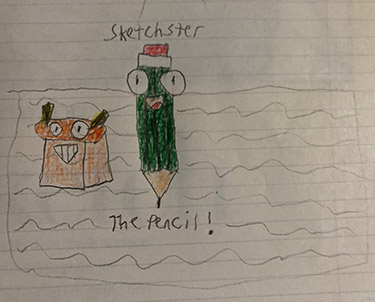 Sketchster
The pencil!